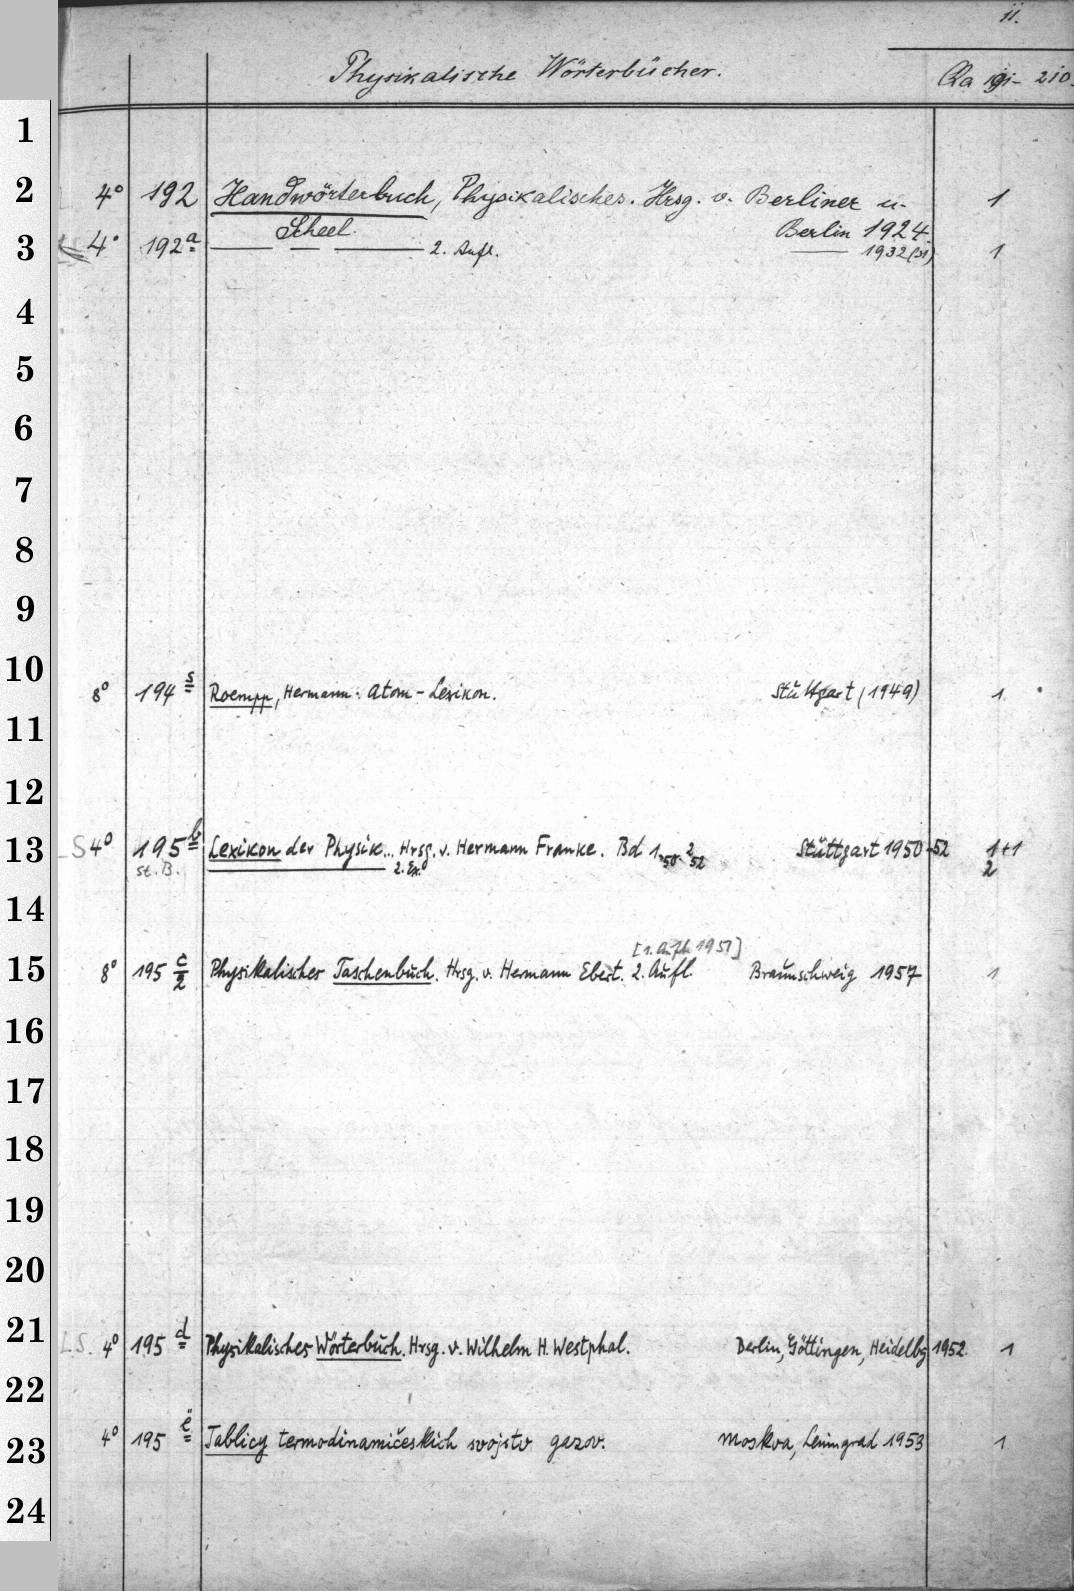 11.
Physikalische Wörterbücher.
Qa 191-210.
1
2 4° 192 Handwörterbuch, Physikalisches. Hrsg. v. Berliner u. 1
Scheel. Berlin 1924.
3 4° 192a 2. Aufl. 1932 1
4
5
6
7
8
9
10
8° 194s Roempp, Hermann: Atom-Lexikon. Stuttgart (1949) 1
11
12
13 S 4° 195b Lexikon der Physik.. Hrsg. v. Hermann Franke. Bd 1.50. 2 52 Stuttgart 1950-52 1+1
st. B. 2. Ex. 2
14
[1. Aufl. 1951]
15 8° 195 c/2 Physikalisches Taschenbuch. Hrsg. v. Hermann Ebert. 2. Aufl. Braunschweig 1957 1
16
17
18
19
20
21 LS. 4° 195 d Physikalisches Wörterbuch. Hrsg. v. Wilhelm H. Westphal. Berlin, Göttingen, Heidelbg 1952. 1
22
23 4° 195 e Tablicy termodinamičeskich svojstv gazov. Moskva, Leningrad 1953 1
24